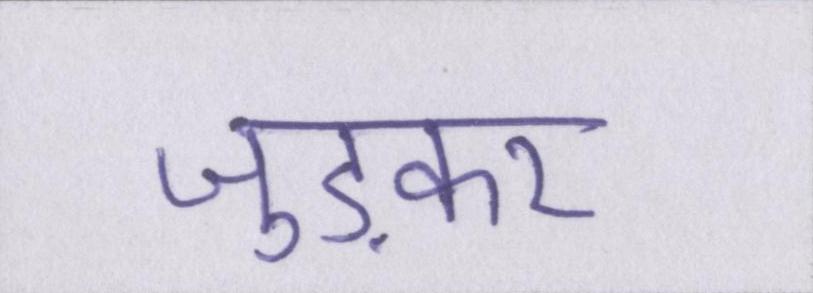 जुड़कर